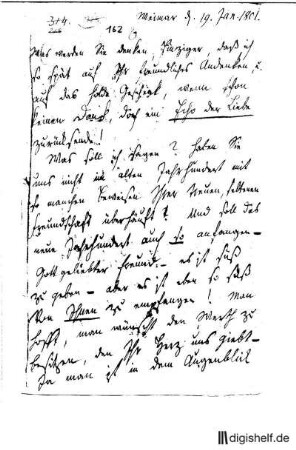 3+4.
162
Weimar d. 19. Jan. 1801.
Was werden Sie denken, Einziger, daß ich
so spät auf Ihr freundliches Andenken, u.
auf das holde Geschenk, wenn schon
keinen Dank, doch ein Echo der Liebe
zurücksende!
Was soll ich sagen? haben Sie
uns nicht im alten Jahrhundert mit
so manchen Beweisen Ihrer treuen, seltenen
Freundschaft überhäuft? Und soll das
neue Jahrhundert auch so anfangen-
Gott geliebter Freund - es ist süß
zu geben - aber es ist eben so süß
von Ihnen zu empfangen! Man
hofft, man wünscht den Werth zu
besitzen, den Ihr Herz uns giebt-
Ja man ist in dem Augenblick
digishelf.de